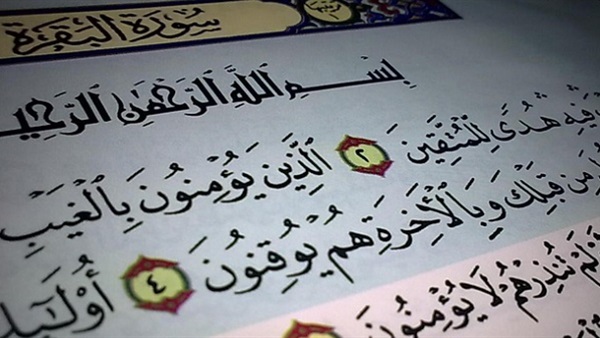 سُورَةُ الْبَقَرَةِ
بِسْمِ اللَّهِ الرَّحْمَٰنِ الرَّحِيمِ
فِيهِ هُدًى لِّلْمُتَّقِينَ ٢ الَّذِينَ يُؤْمِنُونَ بِالْغَيْبِ
مِن قَبْلِكَ وَبِالْأَخِرَةِ هُمْ يُوقِنُونَ ٤
تُنذِرْهُمْ لَا يُؤْمِنُونَ